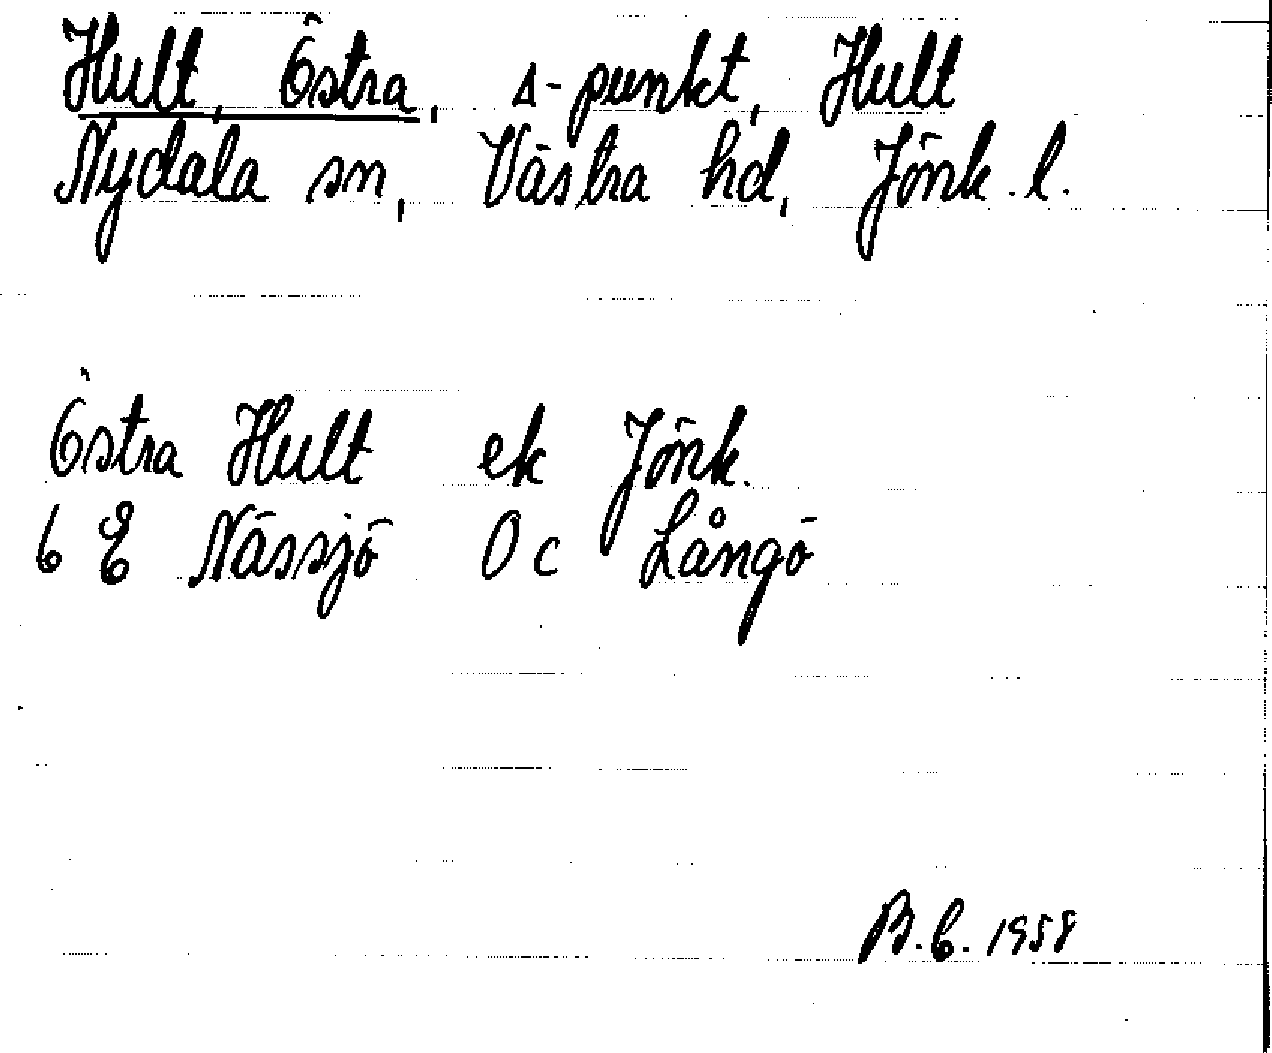 Hult, Östra, Δ-punkt, Hult
Nydala sn, Västra hd, Jönk. l.
Östra Hult ek Jönk.
6 E Nässjö 0 c Långö
B.E. 1958